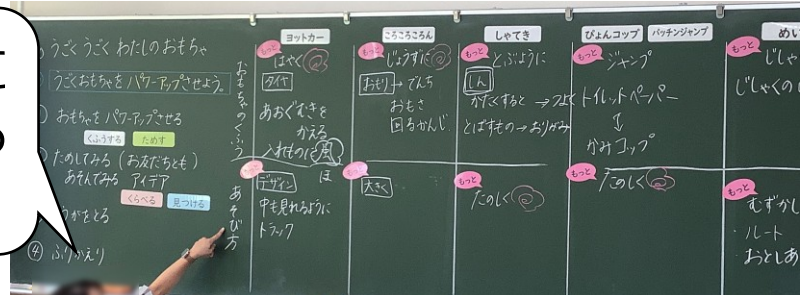 うごくうごく わたしのおもちゃ
うごくおもちゃを パワーアップさせよう。
おもちゃを パワーアップさせる
くふうする
ためす
ためしてみる(お友だちとも)
あそんでみる アイデア
くらべる
見つける
うがをとる
④ ふりかえり
おもちゃのくふう
あそび方
ヨットカー
もっと
はやく
タイヤ
あおぐむきを
かえる
入れものに風
ほ
もっと
デザイン
中も見れるように
トラック
ころころころん
もっと
じょうずに
おもり→でんち
おもさ
回るかんじ
もっと
大きく
しゃてき
もっと
とぶように
しん
かたくすると→つよく
とばすもの→おりがみ
もっと
たのしく
ぴょんコップ
パッチンジャンプ
もっと
ジャンプ
トイレットペーパー
↕
かみコップ
もっと
たのしく
めい
もっと
じしゃ
じしゃくの
もっと
むずかし
・ルート
・おとしあ